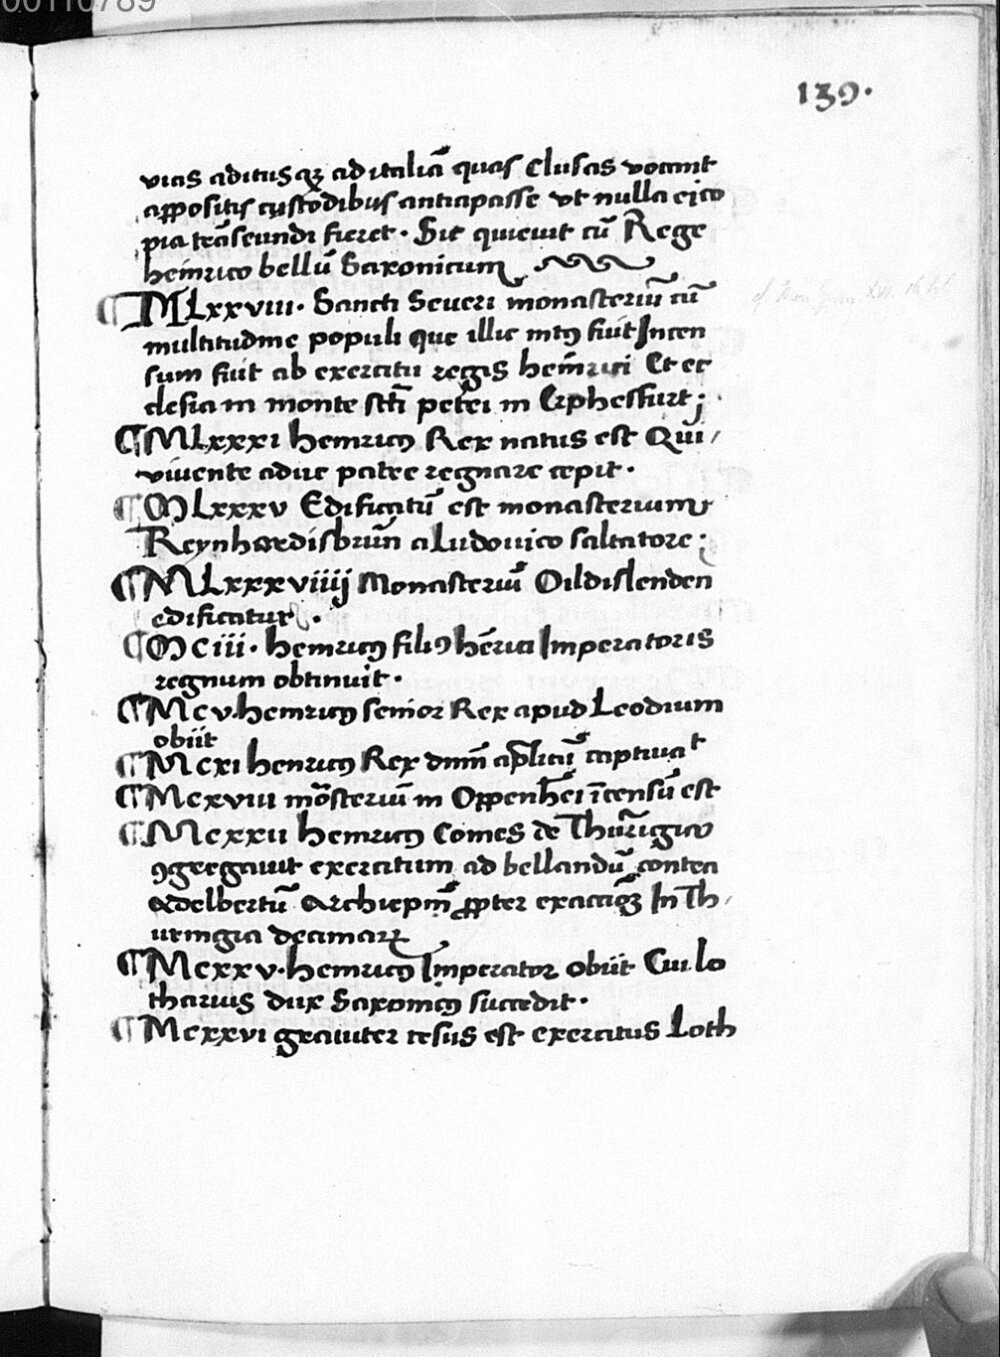 00110789
139.
vias aditusqꝫ ad italiā quas Clusas vocant
appositis custodibus antiapasse vt nulla ei co
pia trāseundi fieret · Sic quieuit cū Rege
heinrico bellū Saxonicum
¶ MLxxviii · Sancti Seueri monasteriū cū
multitudine populi que illic intꝰ fuit Incen
sum fuit ab exercitu regis heinrici Et ec
clesia in monte scti petri in Erphesfurt ;
¶ MLxxxi heinricꝰ Rex natus est Qui /
viuente aduc patre regnare cepit ·
¶ MLxxxv Edificatū est monasterium
Reynhardisbrun a Ludouico saltatore ;
¶ MLxxxviiij Monasteriū Oildislenden
edificatur ·
¶ Mciii · heinricꝰ filiꝰ hērici Imperatoris
regnum obtinuit ·
¶ Mcv · heinricꝰ senior Rex apud Leodium
obiit
¶ Mcxi henricꝰ Rex dnm̄ aplicū captiuat
¶ Mcxviii mōsteriū in Oppenhei īcensū est
¶ Mcxxii heinricꝰ Comes de Thuringia
ꝯgregauit exercitum ad bellandū contra
Adelbertū Archiepm̄ ꝓpter exaccioꝫ In Th /
uringia decimaꝝ
¶ Mcxxv · heinricꝰ Imperator obiit Cui lo
tharius dux Saxonicꝰ succedit ·
¶ Mcxxvi grauiter cesus est exercitus Loth